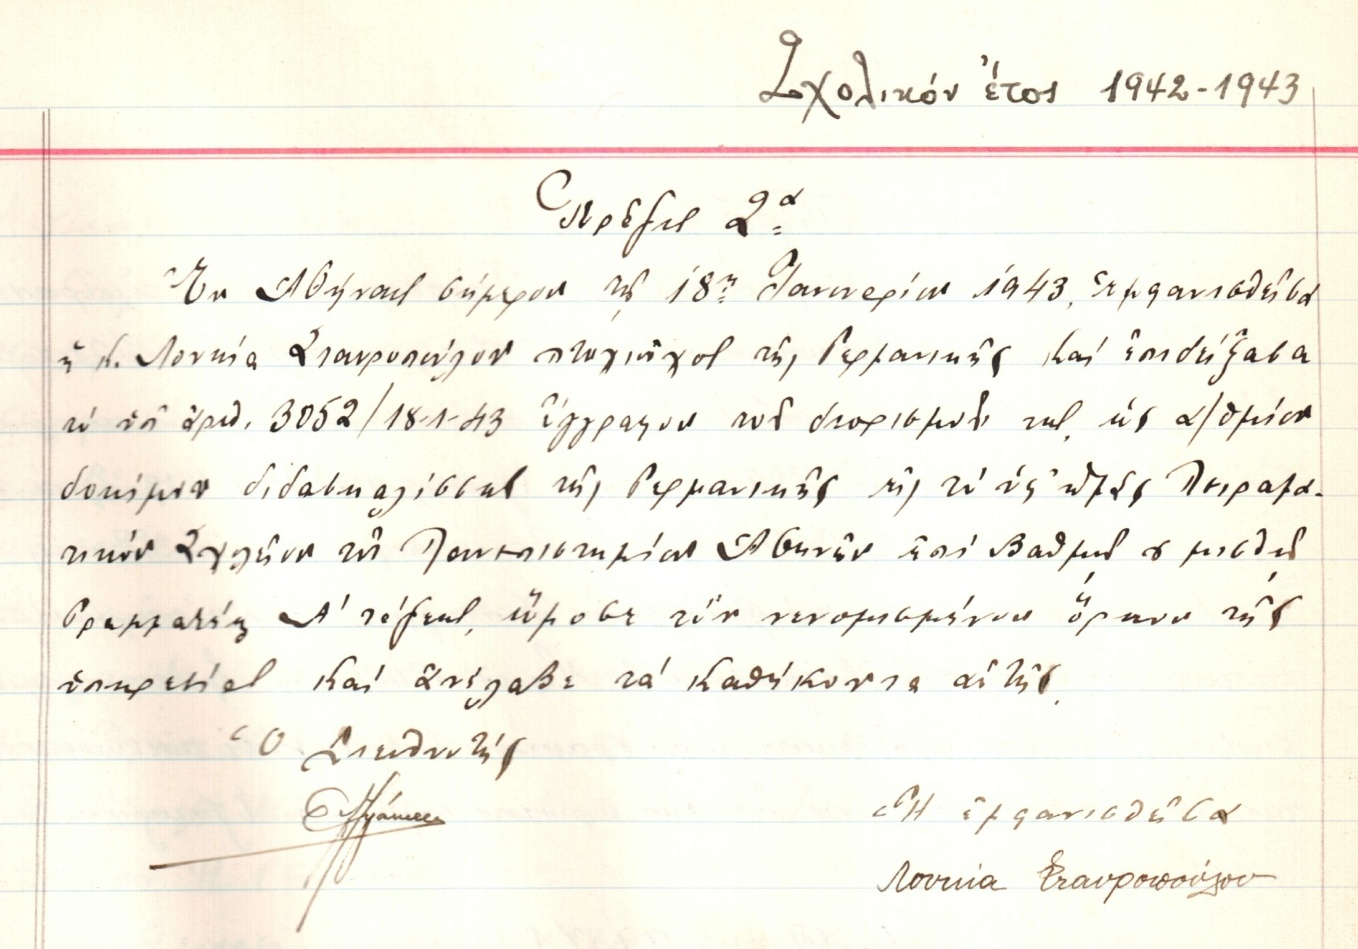 Σχολικόν ἔτος 1942-1943
Πρᾶξις 2α
Ἐν Ἀθήναις σήμερον τῇ 18ῃ Ἰανουαρίου 1943, ἐμφανισθεῖσα
ἡ κ. Λουκία Σταυροπούλου πτυχιοῦχος τῆς Γερμανικῆς καί ἐπιδείξασα
τό ὑπ' ἀριθ. 3052/18-1-43 ἔγγραφον τοῦ διορισμοῦ της, ὡς α/θμίου
δοκίμου διδασκαλίσσης τῆς Γερμανικῆς εἰς τό ὑφ' ἡμᾶς Πειραμα-
τικόν Σχολεῖον τοῦ Πανεπιστημίου Ἀθηνῶν ἐπί βαθμῷ μισθῷ
Γραμματέως Α' τάξεως, ὤμοσε τόν νενομισμένον ὅρκον τῆς
ὑπηρεσίας καί ἀνέλαβε τά καθήκοντα αὐτῆς.
Ὁ Διευθυντής
Ἡ ἐμφανισθεῖσα
Λουκία Σταυροπούλου